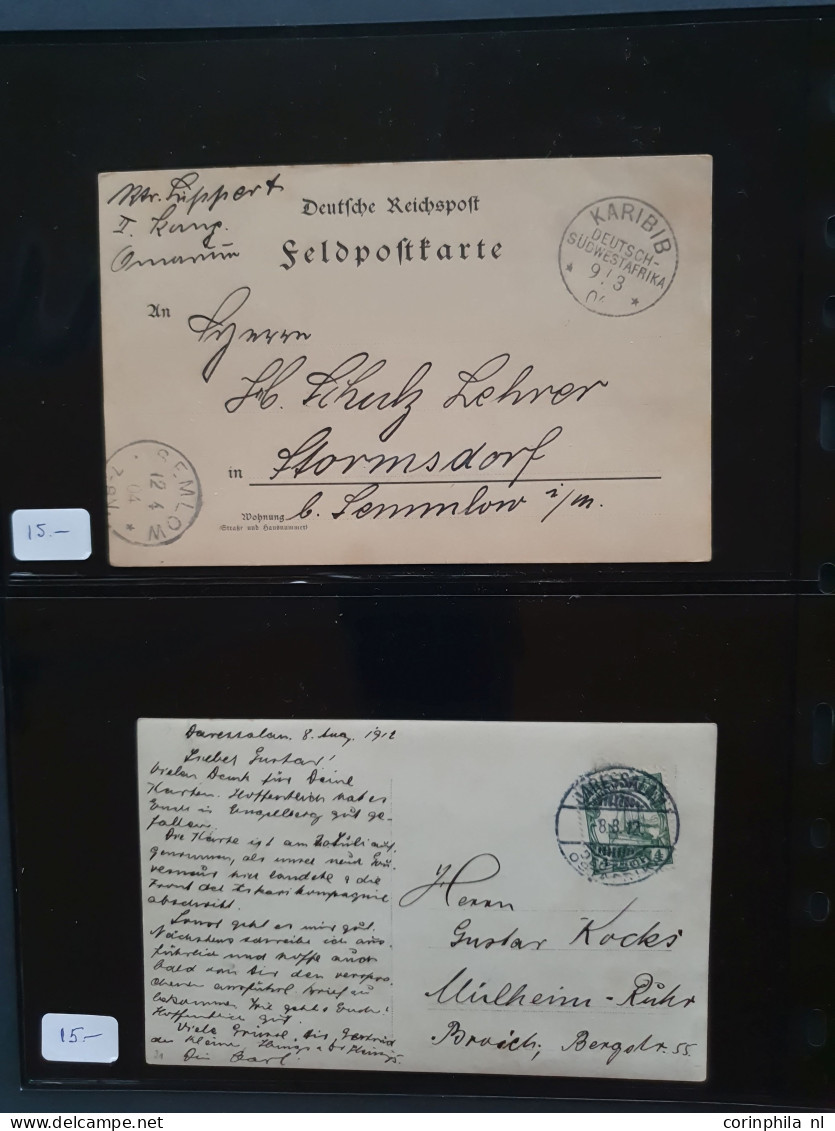 Rtr. Lippert
II. Komp.
Omaruru
Deutsche Reichspost
Feldpostkarte
KARIBIB
DEUTSCH-
SÜDWESTAFRIKA
9/3
An
Herrn
Schulz Lehrer
in Stormsdorf
Wohnung b. Semmlow i/m.
(Straße und Hausnummer)
SEMLOW
12 4
04
15.-
Daressalam. 8. Aug. 1912
Lieber Gustav!
Vielen Dank für Deine
Karten. Hoffentlich hat es
Euch in Engelberg gut ge-
fallen.
Die Karte ist am Juli auf-
genommen, als unser neuer Gou-
verneur hier landete & die
Front der Askarikompagnie
abschritt.
Sonst geht es mir gut.
Nächstens schreibe ich aus-
führlich und hoffe auch
bald von Dir den verspro-
chenen ausführl. Brief zu
bekommen. Wie geht's Euch?
Hoffentlich gut.
Viele Grüsse, Dir, Gertrud
den Kleinen,
Dein Carl.
DARESSALAM
8.8.12
Herrn
Gustav Kocks
Mülheim-Ruhr
Broich, Bergstr. 55.
15.-
www.delcampe.net
corinphila nl